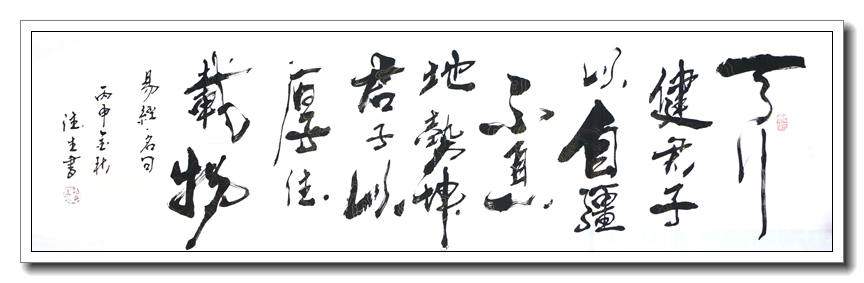 天行
健君子
以自疆
不息
地勢坤
君子以
厚德
載物
易經名句
丙申金秋
德生書